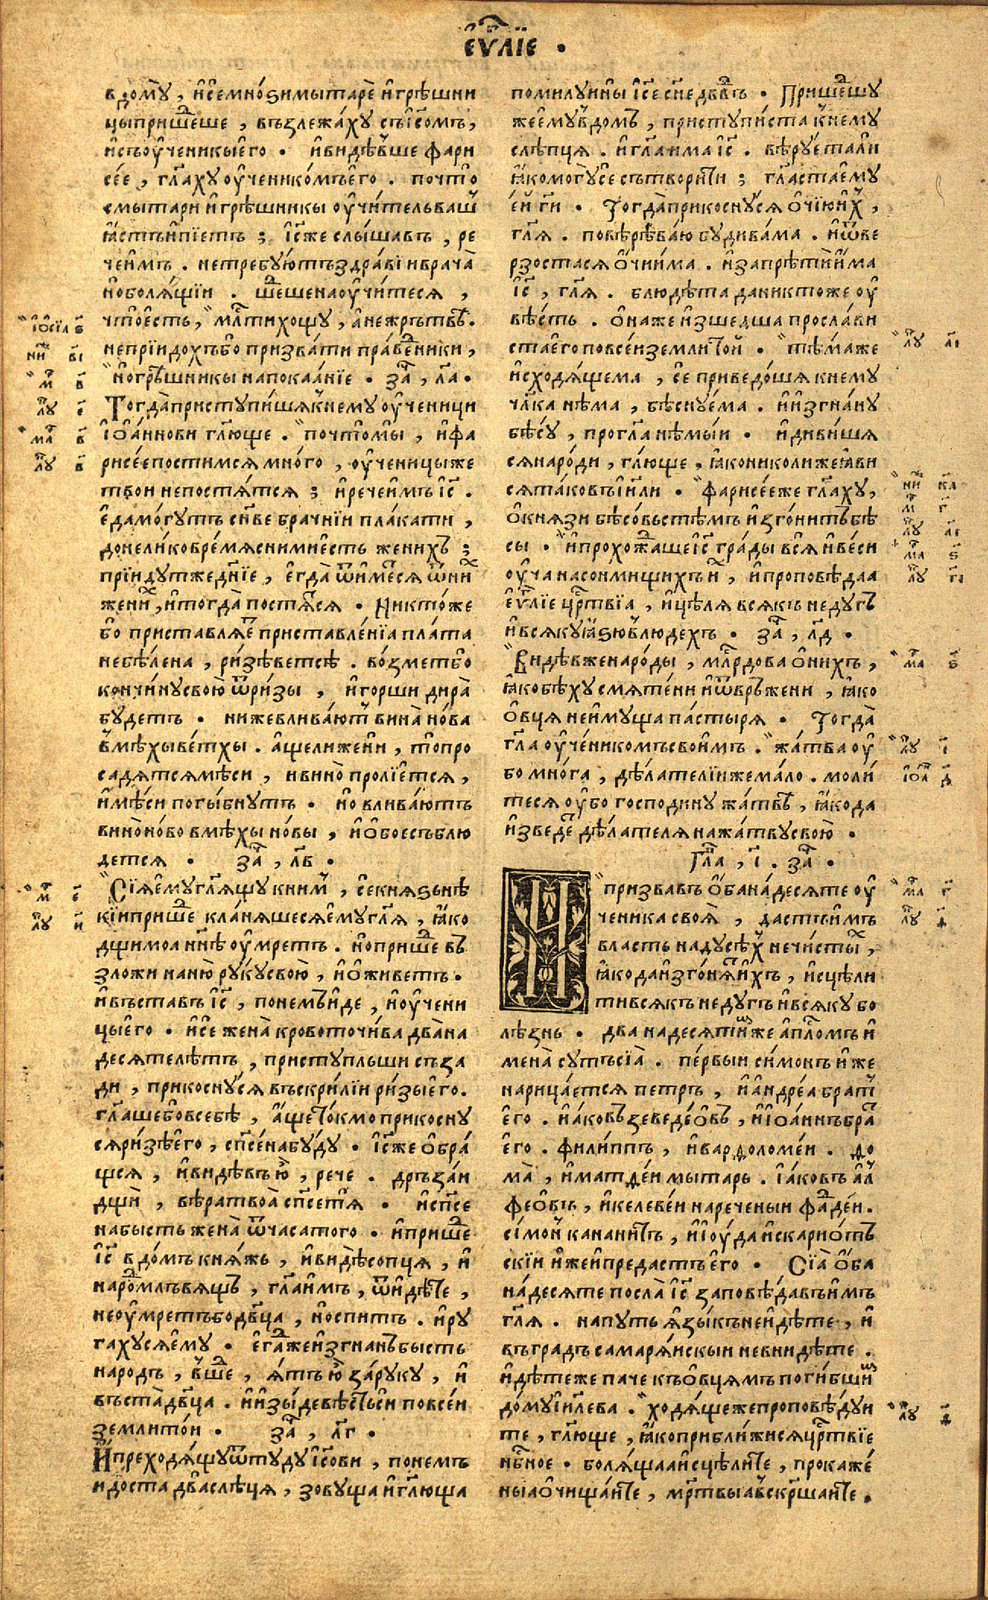 є҆ѵⷢ҇лїе .
в дому̀, и҆ сѐ мно́ѕи мытарѐ и҆ грѣ́шни
цы прише́ⷣше, възлежа́ху съ і҆с҃омъ,
и҆ съ ѹ҆ченикы̀ є҆го̀ . и҆ ви́дѣвше фари
се́е, гл҃аху ѹ҆ченико́мъ є҆го̀ . почто̀
с мытарѝ и҆ грѣ́шникы ѹ҆чи́тель ва́ш
ꙗ҆́стъ и҆ пїе́тъ ; і҆с҃ же слы́шавъ, ре
че и҆̀мъ . не тре́буютъ здра́вїи врача̀
но боля́щїи . ше́ⷣше на ѹ҆чи́теся,
что̀ є҆́сть, мл҃ти хощу̀, а҆ не же́ртвѣ .
не прїидо́хъ бо призва́ти пра́веⷣники,
но грѣ́шникы на покаа́нїе . заⷱ҇, л҃а .
Тогда̀ приступи́шя к нему̀ ѹ҆ченици
і҆ѡа́ннови гл҃юще . почто̀ мы̀, и҆ фа
рисе́е пости́мся мно́го, ѹ҆ченицы́ же
твоѝ не постя́тся ; и҆ рече и҆̀мъ і҆с҃ .
є҆да̀ мо́гутъ сн҃ве бра́чнїи пла́кати,
донели́ко вре́мя с ни́ми є҆́сть жени́хъ ;
прїи́дут же дн҃їе, є҆гда̀ ѿи́меⷮся ѿ ни́ⷯ
жени́ⷯ, и҆ тогда̀ постя́ⷮся . Никто́же
бо приставля́еⷮ приставле́нїа пла́та
небѣ́лена, ри́зѣ ве́тсѣ . во́зметъ бо
кончи́ну свою̀ ѿ ри́зы, и҆ го́рши дира̀
бу́детъ . нижѐ влива́ютъ вина̀ но́ва
в мѣ́хы ве́тхы . а҆́ще ли же нѝ, то̀ про
садя́тся мѣ́си, и вино̀ пролїе́тся,
и҆ мѣ́си поги́бнутъ . но̀ влива́ютъ
вино̀ но́во в мѣ́хы но́вы, и҆ ѻ҆бо́е съблю
де́тся . заⷱ҇, л҃в .
Сїя̀ є҆му̀ гл҃ящу к ни́мъ, сѐ кня́ѕь нѣ́
кїи прише́ⷣ кла́няшеся є҆му̀ гл҃я, ꙗ҆́ко
дщѝ моа̀ нн҃ѣ ѹ҆́мретъ . но прише́ⷣ въ
зложѝ на ню̀ ру́ку свою̀, и҆ ѡ҆живе́тъ .
и҆ въста́въ і҆с҃, по не́мъ и҆́де, и҆ ѹ҆чени
цы̀ є҆го̀ . и҆ сѐ жена̀ кровоточи́ва двана
десяте лѣ́тъ, присту́пльши съза
дѝ, прикосну́ся въскри́лїи ри́зы є҆го̀ .
гл҃аше бо в себѣ̀, а҆́ще то́кмо прикосну
ся ри́зѣ є҆го̀, сп҃се́на бу́ду . і҆с҃ же ѻ҆бра́
щся, и҆ ви́дѣвъ ю҆̀, рече . дръза́и
дщѝ, вѣ́ра твоа̀ сп҃се́ тя . и҆ сп҃се
на бысть жена̀ ѿ часа̀ того̀ . и҆ прише́ⷣ
і҆с҃ в до́мъ кня́жь, и҆ ви́дѣ сопця̀, и҆
наро́ⷣ млъвя́щъ, гл҃а и҆̀мъ, ѿиди́те,
не ѹ҆́мретъ бо дв҃ца, но спи́тъ . и҆ ру
га́хуся є҆му̀ . є҆гда́ же и҆згна́нъ бысть
наро́дъ, вше́ⷣ, я҆́тъ ю҆̀ за ру́ку, и҆
въста̀ дв҃ца . и҆ и҆зы́де вѣ́сть сѝ по все́и
землѝ то́и . заⷱ҇, л҃г .
И҆ преходя́щу ѿту́ду і҆с҃ови, по не́мъ
идо́ста два̀ слѣпця̀, зову́ща и҆ гл҃юща
поми́луи ны̀ і҆с҃е сн҃е дв҃двъ . Прише́ⷣшу
же є҆му̀ в до́мъ, приступи́ста к нему̀
слѣпця̀ . и҆ гл҃а и́ма і҆с҃ . вѣ́руета ли
ꙗ҆́ко могу̀ сѐ сътвори́ти ; гл҃аста є҆му̀
є҆́и гⷭ҇и . Тогда̀ прикосну́ся ѻ҆чїю̀ и҆́ⷯ,
гл҃я . по вѣ́рѣ ваю̀ бу́ди ва́ма . и҆ ѿве
рзо́стася ѻ҆́чи и́ма . и҆ запрѣтѝ и҆́ма
і҆с҃, гл҃я . блюдѣ́та да никто́же ѹ҆
вѣ́сть . ѻ҆на́ же и҆зше́дша просла́ви
ста є҆го̀ по все́и землѝ то́й . тѣ́ма же
и҆сходя́щема, сѐ приведо́шя к нему̀
чл҃ка нѣ́ма, бѣсну́ема . и҆ и҆згна́ну
бѣ́су, прогл҃а нѣмы́и . и҆ диви́шя
ся наро́ди, гл҃юще, ꙗ҆́ко николи́же ꙗ҆ви
ся та́ко въ і҆и҃ли . фарисе́е же гл҃аху,
ѻ҆ кня́зи бѣсо́вьстѣмъ и҆зго́нитъ бѣ
сы . и҆ прохожа́ⷣше і҆с҃ гра́ды вся̀ и҆ ве́си
ѹ҆ча̀ на со́нмищихъ и҆́ⷯ, и҆ проповѣ́даа
є҆ѵⷢ҇лїе црⷭ҇твїа, и҆ цѣля̀ всякъ неду́гъ
и҆ вся́ку ꙗ҆́ѕю в лю́дехъ . заⷱ҇, л҃д .
Ви́дѣв же наро́ды, млⷭ҇рдова ѻ҆ ни́хъ,
ꙗ҆́ко бѣ́ху смяте́ни и҆ ѿвръ́жени, ꙗ҆́ко
ѻ҆́вця не и҆му́ща па́стыря . Тогда̀
гл҃а ѹ҆ченико́мъ свои́мъ . жа́тва ѹ҆́
бо мно́га, дѣ́лателїи же ма́ло . моли́
теся ѹ҆́бо господи́ну жа́твѣ, ꙗ҆́ко да
и҆зведе́ⷮ дѣ́лателя на жа́тву свою̀ .
Гл҃а, і҃ . заⷱ҇ .
И҆ призва́въ ѻ҆́ба на́десяте ѹ҆
ченика̀ своя̀, да́стъ и҆̀мъ
вла́сть на ду́сѣⷯ нечи́стыⷯ,
ꙗ҆́ко да и҆зго́няⷮ и҆́хъ, и҆ цѣли
ти вся́къ неду́гъ и҆ вся́ку бо
лѣ́знь . два на́десятиⷯ же а҆пⷭ҇ломъ и҆
мена̀ су́ть сїа̀ . пе́рвыи си́монъ и҆́же
нарица́ется пе́тръ, и҆ а҆ндре́а бра́тъ
є҆го̀ . и҆а́ковъ зеведе́ѻвъ, и҆ і҆ѡа́ннъ бра́т
є҆го̀ . фили́ппъ, и҆ вардоломе́и . до
ма̀, и҆ матде́и мыта́рь . і҆а́ковъ а҆л
фе́ѻвъ, и҆ келеве́и нарече́ныи фаде́и .
сі́мон канани́тъ, и҆ і҆ю́да и҆скарїо́тъ
скїи и҆́же и҆ преда́стъ є҆го̀ . Сїа̀ ѻ҆́ба
на́десяте посла̀ і҆с҃ заповѣ́давъ и҆̀мъ
гл҃я . на пу́ть я҆зы́къ не и҆дѣ́те, и҆
въ гра́дъ самаря́нскыи не вни́дѣте .
и҆дѣ́те же па́че къ ѻ҆вця́мъ поги́бшиⷨ
до́му і҆и҃лева . ходя́ще же проповѣ́дуи
те, гл҃юще, ꙗ҆́ко прибли́жися црⷭ҇твїе
нбⷭ҇ное . боля́щаа и҆сцѣли́те, прокаже́
ныа ѻ҆чища́ите, мр҃твыа въскр҃ша́ите .